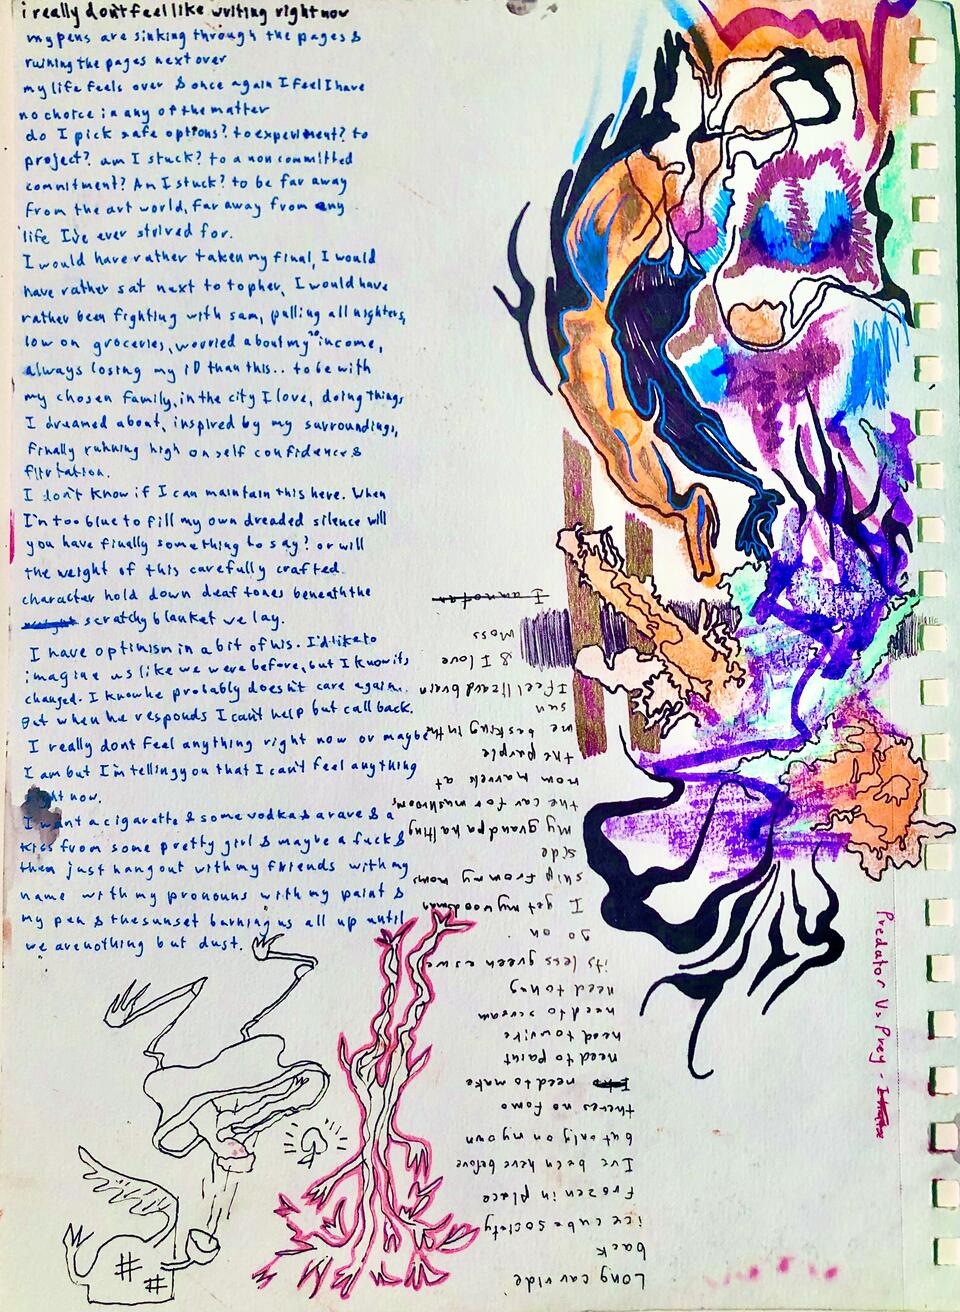 i really don't feel like writing right now
my pens are sinking through the pages &
ruining the pages next over
my life feels over & once again I feel I have
no choice in any of the matter
do I pick safe options? to experiment? to
project? am I stuck? to a non committed
commitment? Am I stuck? to be far away
from the art world, far away from any
life I've ever strived for.
I would have rather taken my final, I would
have rather sat next to topher, I would have
rather been fighting with sam, pulling all nighters,
low on groceries, worried about my income,
always losing my ID than this.. to be with
my chosen family, in the city I love, doing things
I dreamed about, inspired by my surroundings,
finally running high on self confidence &
flirtation.
I don't know if I can maintain this here. When
I'm too blue to fill my own dreaded silence will
you have finally something to say? or will
the weight of this carefully crafted
character hold down deaf tones beneath the
scratchy blanket we lay.
I have optimism in a bit of his. I'd like to
imagine us like we were before, but I know its
changed. I know he probably doesn't care again.
But when he responds I can't help but call back.
I really dont feel anything right now or maybe
I am but I'm telling you that I can't feel anything
right now.
I want a cigarette & some vodka & a rave & a
kiss from some pretty girl & maybe a fuck &
then just hang out with my friends with my
name with my pronouns with my paint &
my pen & the sunset burning us all up until
we are nothing but dust.
Long car ride
back
ice cube society
frozen in place
I've been here before
but only on my own
theres no fomo
need to make
need to paint
need to write
need to scream
need to hug
its less green as we
go on
I get my woodman
ship from my moms
side
my grandpa halting
the car for mushrooms
mom marvels at
the purple
me basking in the
sun
I feel lizard brain
& I love
Moss
I am not an
Predator Vs Prey -
# #